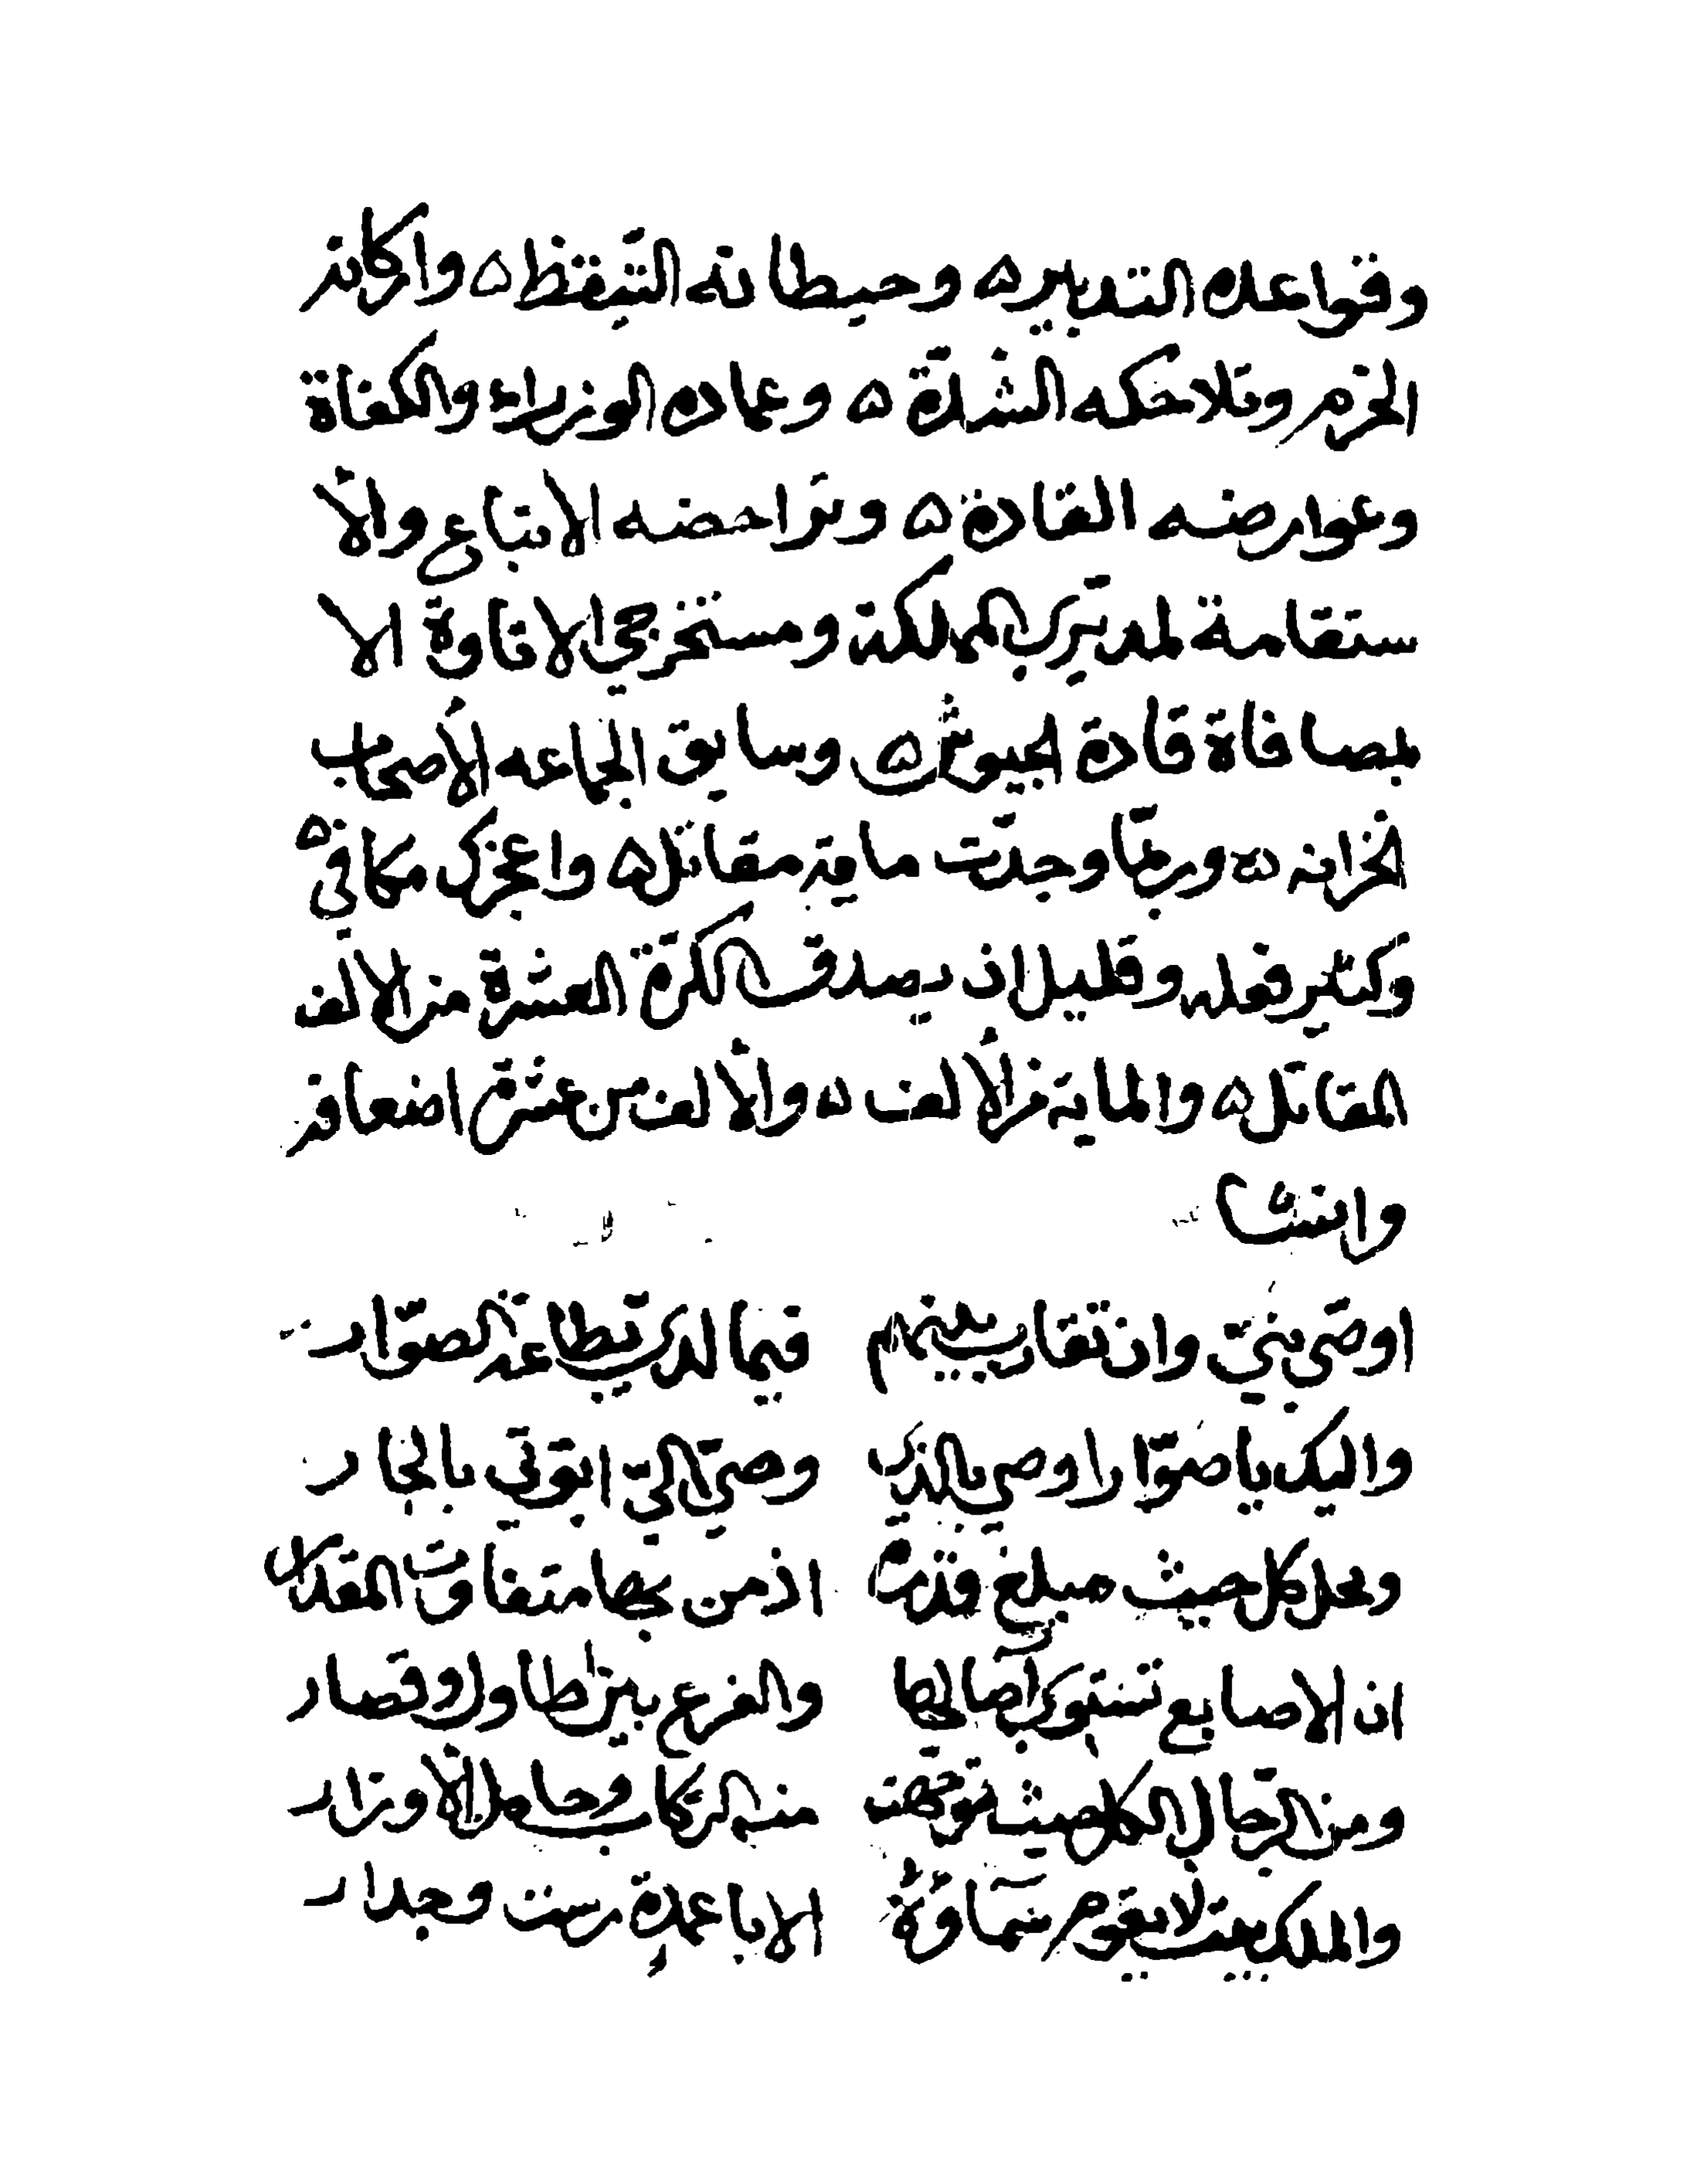 وقواعده التدبير ه وحيطانه التيقظ ه واركانه
الحزم وملاحكه الشدة ه وعماده الوزراء والكفاة
وعوارضه القادة ه وتراحضه الاتباع والأ
ستقامة لمدبري المملكة ومستخرجي الاتاوة الا
بمصافاة قادة الجيوش ه وسابق الجماعه الأصحاب
الخزانه ه وربما وجدت مايه مقاتل ه واعجزك مكافي ه
وكثير فعله وقليل ان يصدق الكرة العشرة من الالف
المقاتل ه والمايه من الألف ه والألف من عشرة اضعافه
وانشا
اوصي بنيّ وان تقارب بينهم فيما لدي قطاعة الصوّار
واليك يا صوّار اوصي بالذي وصي الي ابوتي بالجار
ومحل كل حيث مبلغ قدره اذ من بها متفاوت المقدار
ان الاصابع تستوي آصالها والفرع بين طاول وقصار
ومن الرجال الكل حيث توجهت منه الركاب وحامل الأوزار
والملك بيت لا يقوم سماوُهُ الا باعمدةٍ رست وجدار